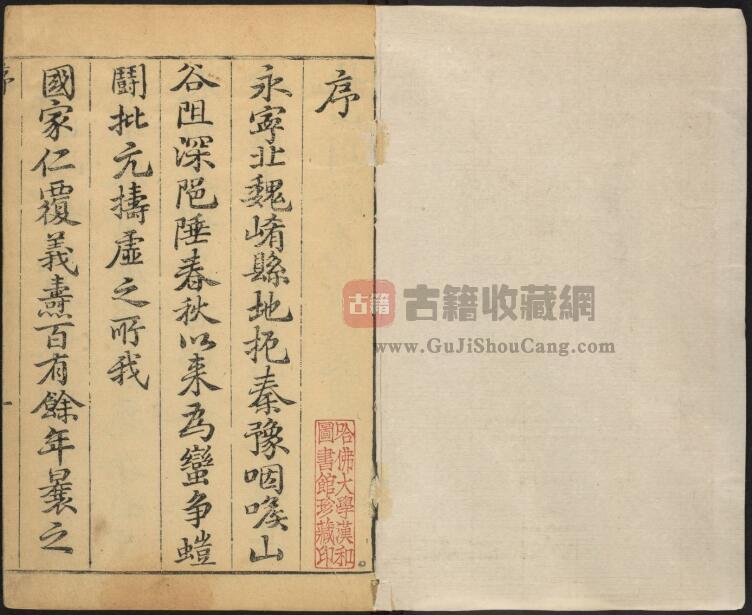 序
永寧北魏崤縣地扼秦豫咽喉山
谷阻深阨陲春秋以来為蠻争螘
鬪批亢擣虛之所我
國家仁覆義燾百有餘年曩之
序
一
哈佛大學漢和
圖書館珍藏印
古籍
古籍收藏網
www.GuJiShouCang.com